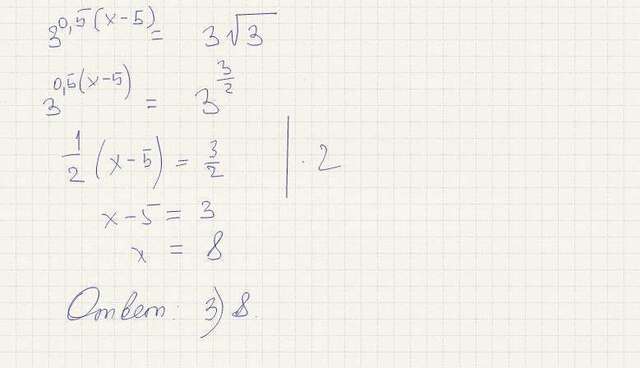 3^{0,5(x-5)} = 3√3
3^{0,5(x-5)} = 3^{3/2}
1/2 (x-5) = 3/2 | · 2
x-5 = 3
x = 8
Ответ: 3) 8.